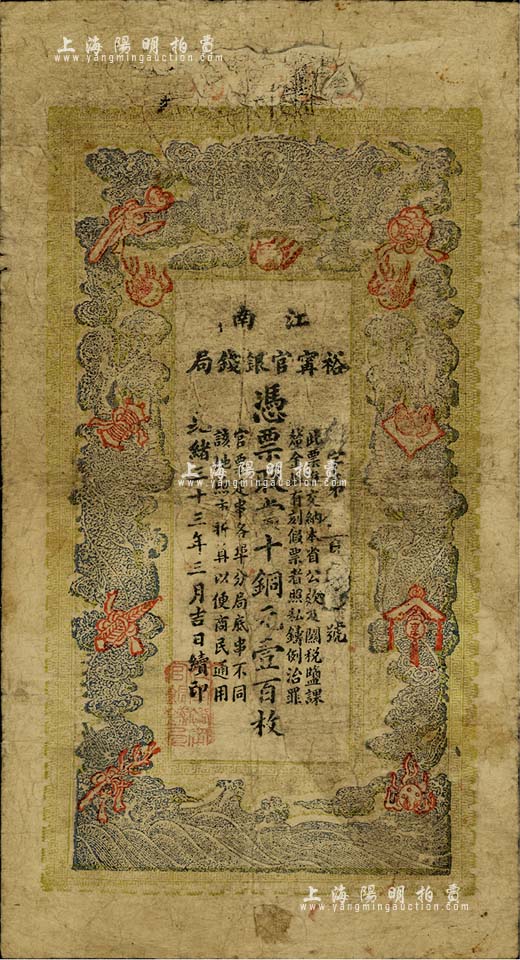 上海陽明拍賣
www.yangmingauction.com
江南
裕甯官銀錢局
第 百 號
此票 交納本省公欵及關稅鹽課
釐金 有刻假票者照私鑄例治罪
憑票 當十銅元壹百枚
官票 各埠分局底串不同
該地 以便商民通用
光緒三十三年三月吉日續印
上海陽明拍賣
www.yangmingauction.com
上海陽明拍賣
www.yangmingauction.com